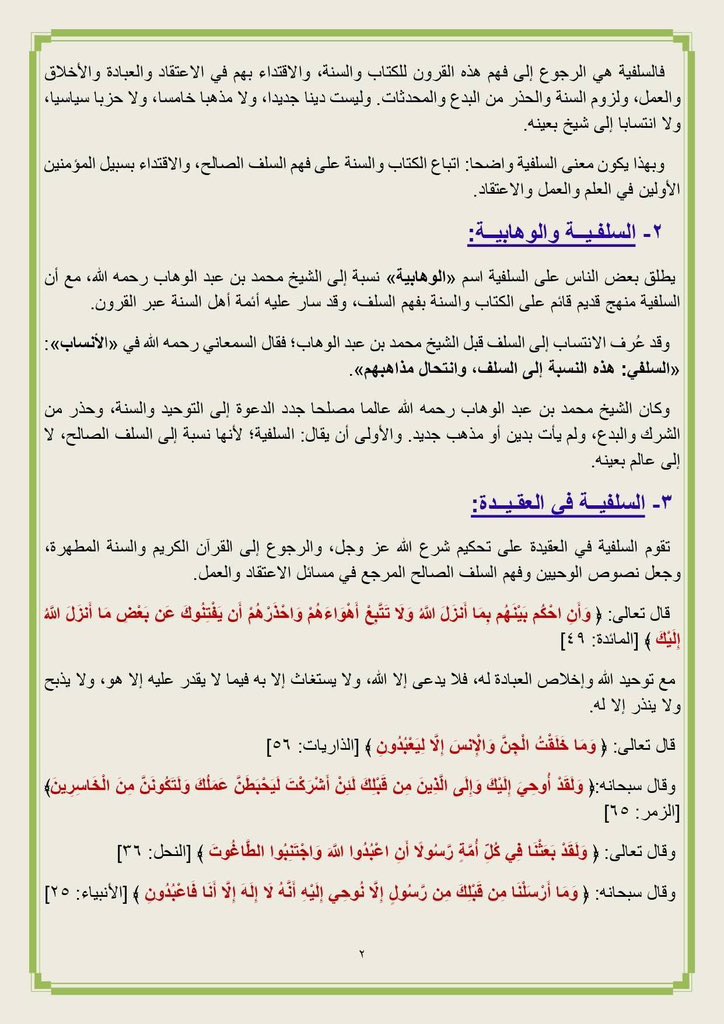 فالسلفية هي الرجوع إلى فهم هذه القرون للكتاب والسنة، والاقتداء بهم في الاعتقاد والعبادة والأخلاق
والعمل، ولزوم السنة والحذر من البدع والمحدثات. وليست دينا جديدا، ولا مذهبا خامسا، ولا حزبا سياسيا،
ولا انتسابا إلى شيخ بعينه.
وبهذا يكون معنى السلفية واضحا: اتباع الكتاب والسنة على فهم السلف الصالح، والاقتداء بسبيل المؤمنين
الأولين في العلم والعمل والاعتقاد.
٢- السلفـيــة والوهابيــة:
يطلق بعض الناس على السلفية اسم «الوهابية» نسبة إلى الشيخ محمد بن عبد الوهاب رحمه الله، مع أن
السلفية منهج قديم قائم على الكتاب والسنة بفهم السلف، وقد سار عليه أئمة أهل السنة عبر القرون.
وقد عُرف الانتساب إلى السلف قبل الشيخ محمد بن عبد الوهاب؛ فقال السمعاني رحمه الله في «الأنساب»:
«السلفي: هذه النسبة إلى السلف، وانتحال مذاهبهم».
وكان الشيخ محمد بن عبد الوهاب رحمه الله عالما مصلحا جدد الدعوة إلى التوحيد والسنة، وحذر من
الشرك والبدع، ولم يأت بدين أو مذهب جديد. والأولى أن يقال: السلفية؛ لأنها نسبة إلى السلف الصالح، لا
إلى عالم بعينه.
٣- السلفيــة في العقـيــدة:
تقوم السلفية في العقيدة على تحكيم شرع الله عز وجل، والرجوع إلى القرآن الكريم والسنة المطهرة،
وجعل نصوص الوحيين وفهم السلف الصالح المرجع في مسائل الاعتقاد والعمل.
قال تعالى: ﴿ وَأَنِ احْكُم بَيْنَهُم بِمَا أَنزَلَ اللَّهُ وَلَا تَتَّبِعْ أَهْوَاءَهُمْ وَاحْذَرْهُمْ أَن يَفْتِنُوكَ عَن بَعْضِ مَا أَنزَلَ اللَّهُ
إِلَيْكَ ﴾ [المائدة: ٤٩]
مع توحيد الله وإخلاص العبادة له، فلا يدعى إلا الله، ولا يستغاث إلا به فيما لا يقدر عليه إلا هو، ولا يذبح
ولا ينذر إلا له.
قال تعالى: ﴿ وَمَا خَلَقْتُ الْجِنَّ وَالْإِنسَ إِلَّا لِيَعْبُدُونِ ﴾ [الذاريات: ٥٦]
وقال سبحانه:﴿ وَلَقَدْ أُوحِيَ إِلَيْكَ وَإِلَى الَّذِينَ مِن قَبْلِكَ لَئِنْ أَشْرَكْتَ لَيَحْبَطَنَّ عَمَلُكَ وَلَتَكُونَنَّ مِنَ الْخَاسِرِينَ﴾
[الزمر: ٦٥]
وقال تعالى: ﴿ وَلَقَدْ بَعَثْنَا فِي كُلِّ أُمَّةٍ رَّسُولًا أَنِ اعْبُدُوا اللَّهَ وَاجْتَنِبُوا الطَّاغُوتَ ﴾ [النحل: ٣٦]
وقال سبحانه: ﴿ وَمَا أَرْسَلْنَا مِن قَبْلِكَ مِن رَّسُولٍ إِلَّا نُوحِي إِلَيْهِ أَنَّهُ لَا إِلَهَ إِلَّا أَنَا فَاعْبُدُونِ ﴾ [الأنبياء: ٢٥]
٢